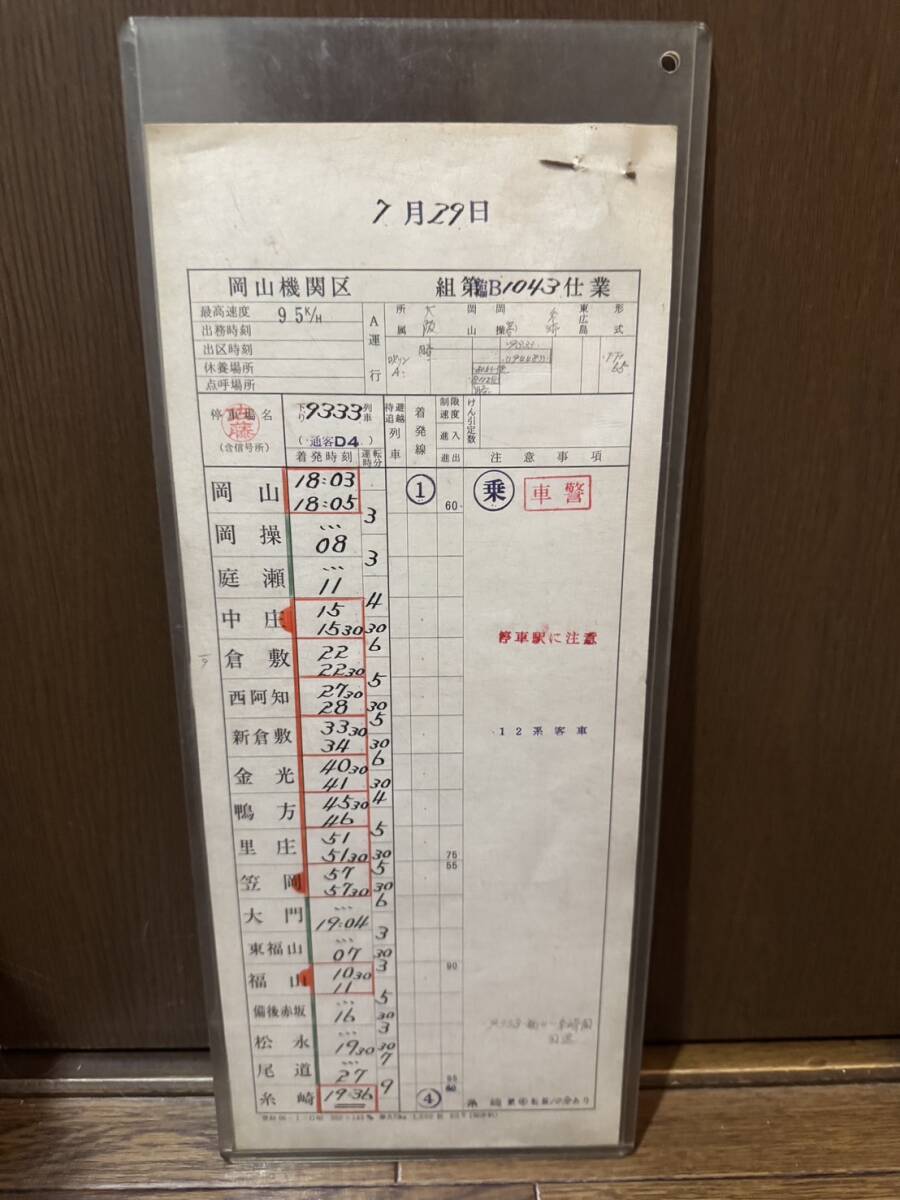 7月29日
岡山機関区 組第臨B1043仕業
最高速度 95K/H
出務時刻
出区時刻
休養場所
点呼場所
A運行
所属
岡山
岡操
東広島
形式
停車場名
(含信号所)
下り9333列車
(通客D4)
着発時刻
運転時分
待避追越列車
着発線
制限速度
進入
進出
けん引定数
注意事項
岡山 18:03 ① 乗 車警
18:05 60
3
岡操 …
08
3
庭瀬 …
11
4
中庄 15
1530 30
停車駅に注意
6
倉敷 22
2230
5
西阿知 2730
28 30
5
新倉敷 3330
34 30
12系客車
6
金光 4030
41 30
4
鴨方 4530
46
5
里庄 51
5130 30
75
5
笠岡 57 55
5730 30
6
大門 …
19:04
3
東福山 …
07 30
3
福山 1030 90
11
5
備後赤坂 …
16 30
3
松永 …
1930 30
7
尾道 …
27
9
糸崎 19:36 ④